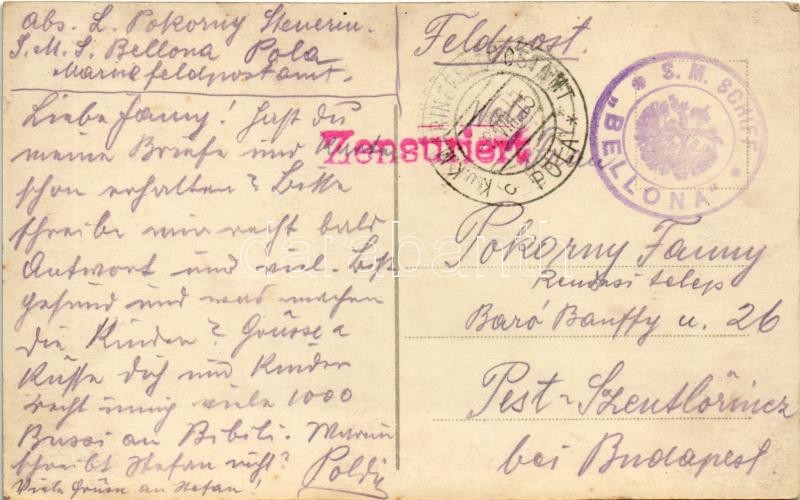 Abs. L. Pokorny Steuerm.
S. M. S. Bellona Pola
Marinefeldpostamt.
Liebe Fanny! Hast du
meine Briefe und
schon erhalten? Bitte
schreibe mir recht bald
Antwort und viel. Bist
gesund und was machen
die Kinder? Grüsse u
Küsse dich und Kinder
recht innig viele 1000
Bussi an Bibili. Warum
schreibt Stefan nicht?
Poldy
Viele Grüsse an Stefan!
Feldpost.
Zensuriert
POLA
* S. M. SCHIFF *
"BELLONA"
Pokorny Fanny
Rendesi telep
Baró Banffy u. 26
Pest-Szentlőrincz
bei Budapest
darabanth